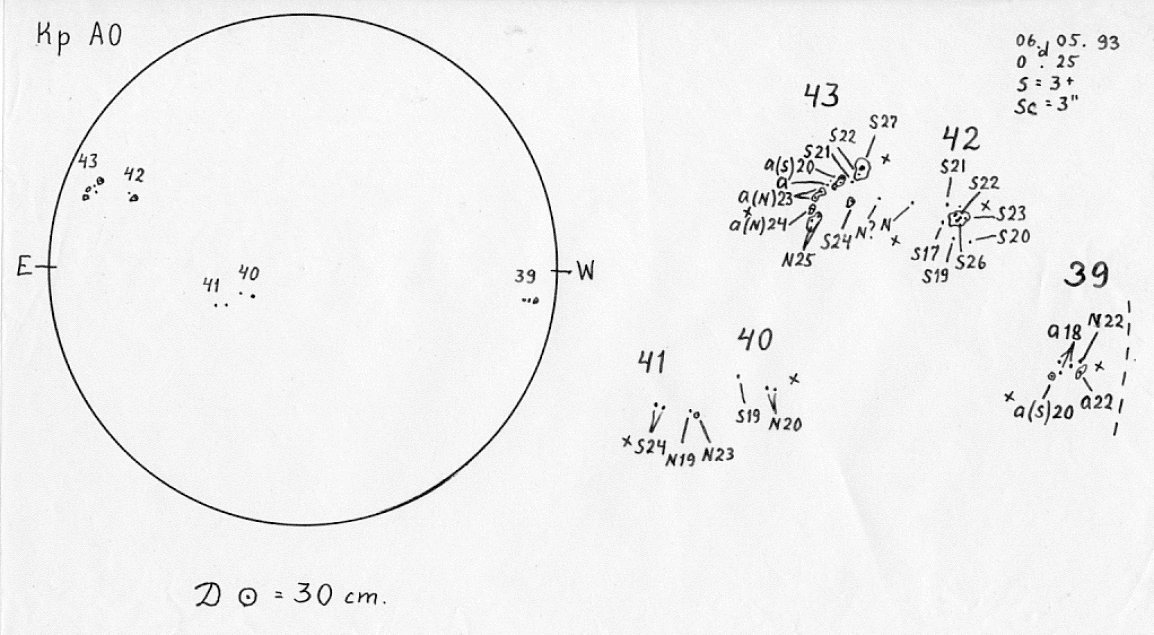 Кр АО
43
42
E
W
41
40
39
D ⊙ = 30 cm.
06. 05. 93
0 d . 25
S = 3+
Sc = 3"
43
S27
S22
S21
a(S)20
a
a(N)23
x
a(N)24
N25
S24
N?
N
x
x
42
S21
S22
x
S23
S20
S17
S19
S26
41
x
S24
N19
N23
40
x
S19
N20
39
a18
N22
x
x
a(S)20
a22